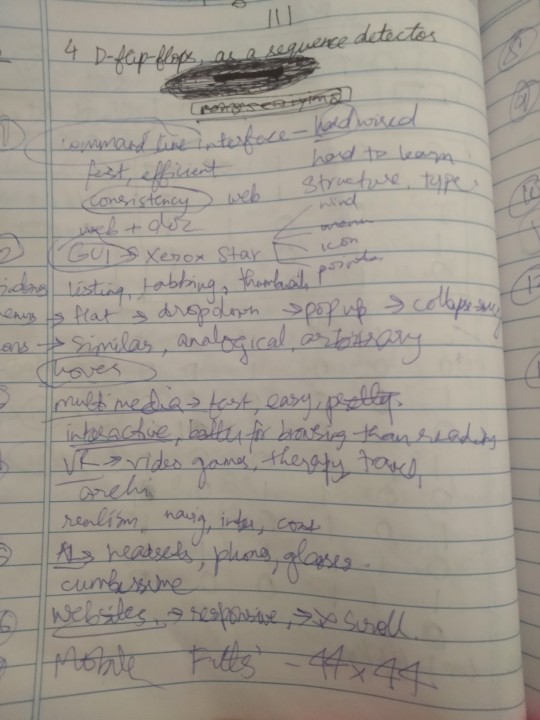 4 D-flip-flops, as a sequence detector
1 command line interface - hard wired
fast, efficient hard to learn
consistency web structure, type,
web + GUI wind
menu
2 GUI → Xerox Star icon
pointer
listing, tabbing, thumbnail
menus → flat → dropdown → popup → collapse
icons → Similar, analogical, arbitrary
hover
multimedia → fast, easy,
interactive, better for browsing than reading
VR → video games, therapy, travel,
archi
realism, navig, inter, cont
AR → headsets, phone, glasses.
cumbersome
6 websites, → responsive, → scroll.
Mobile Fitts' - 44 x 44